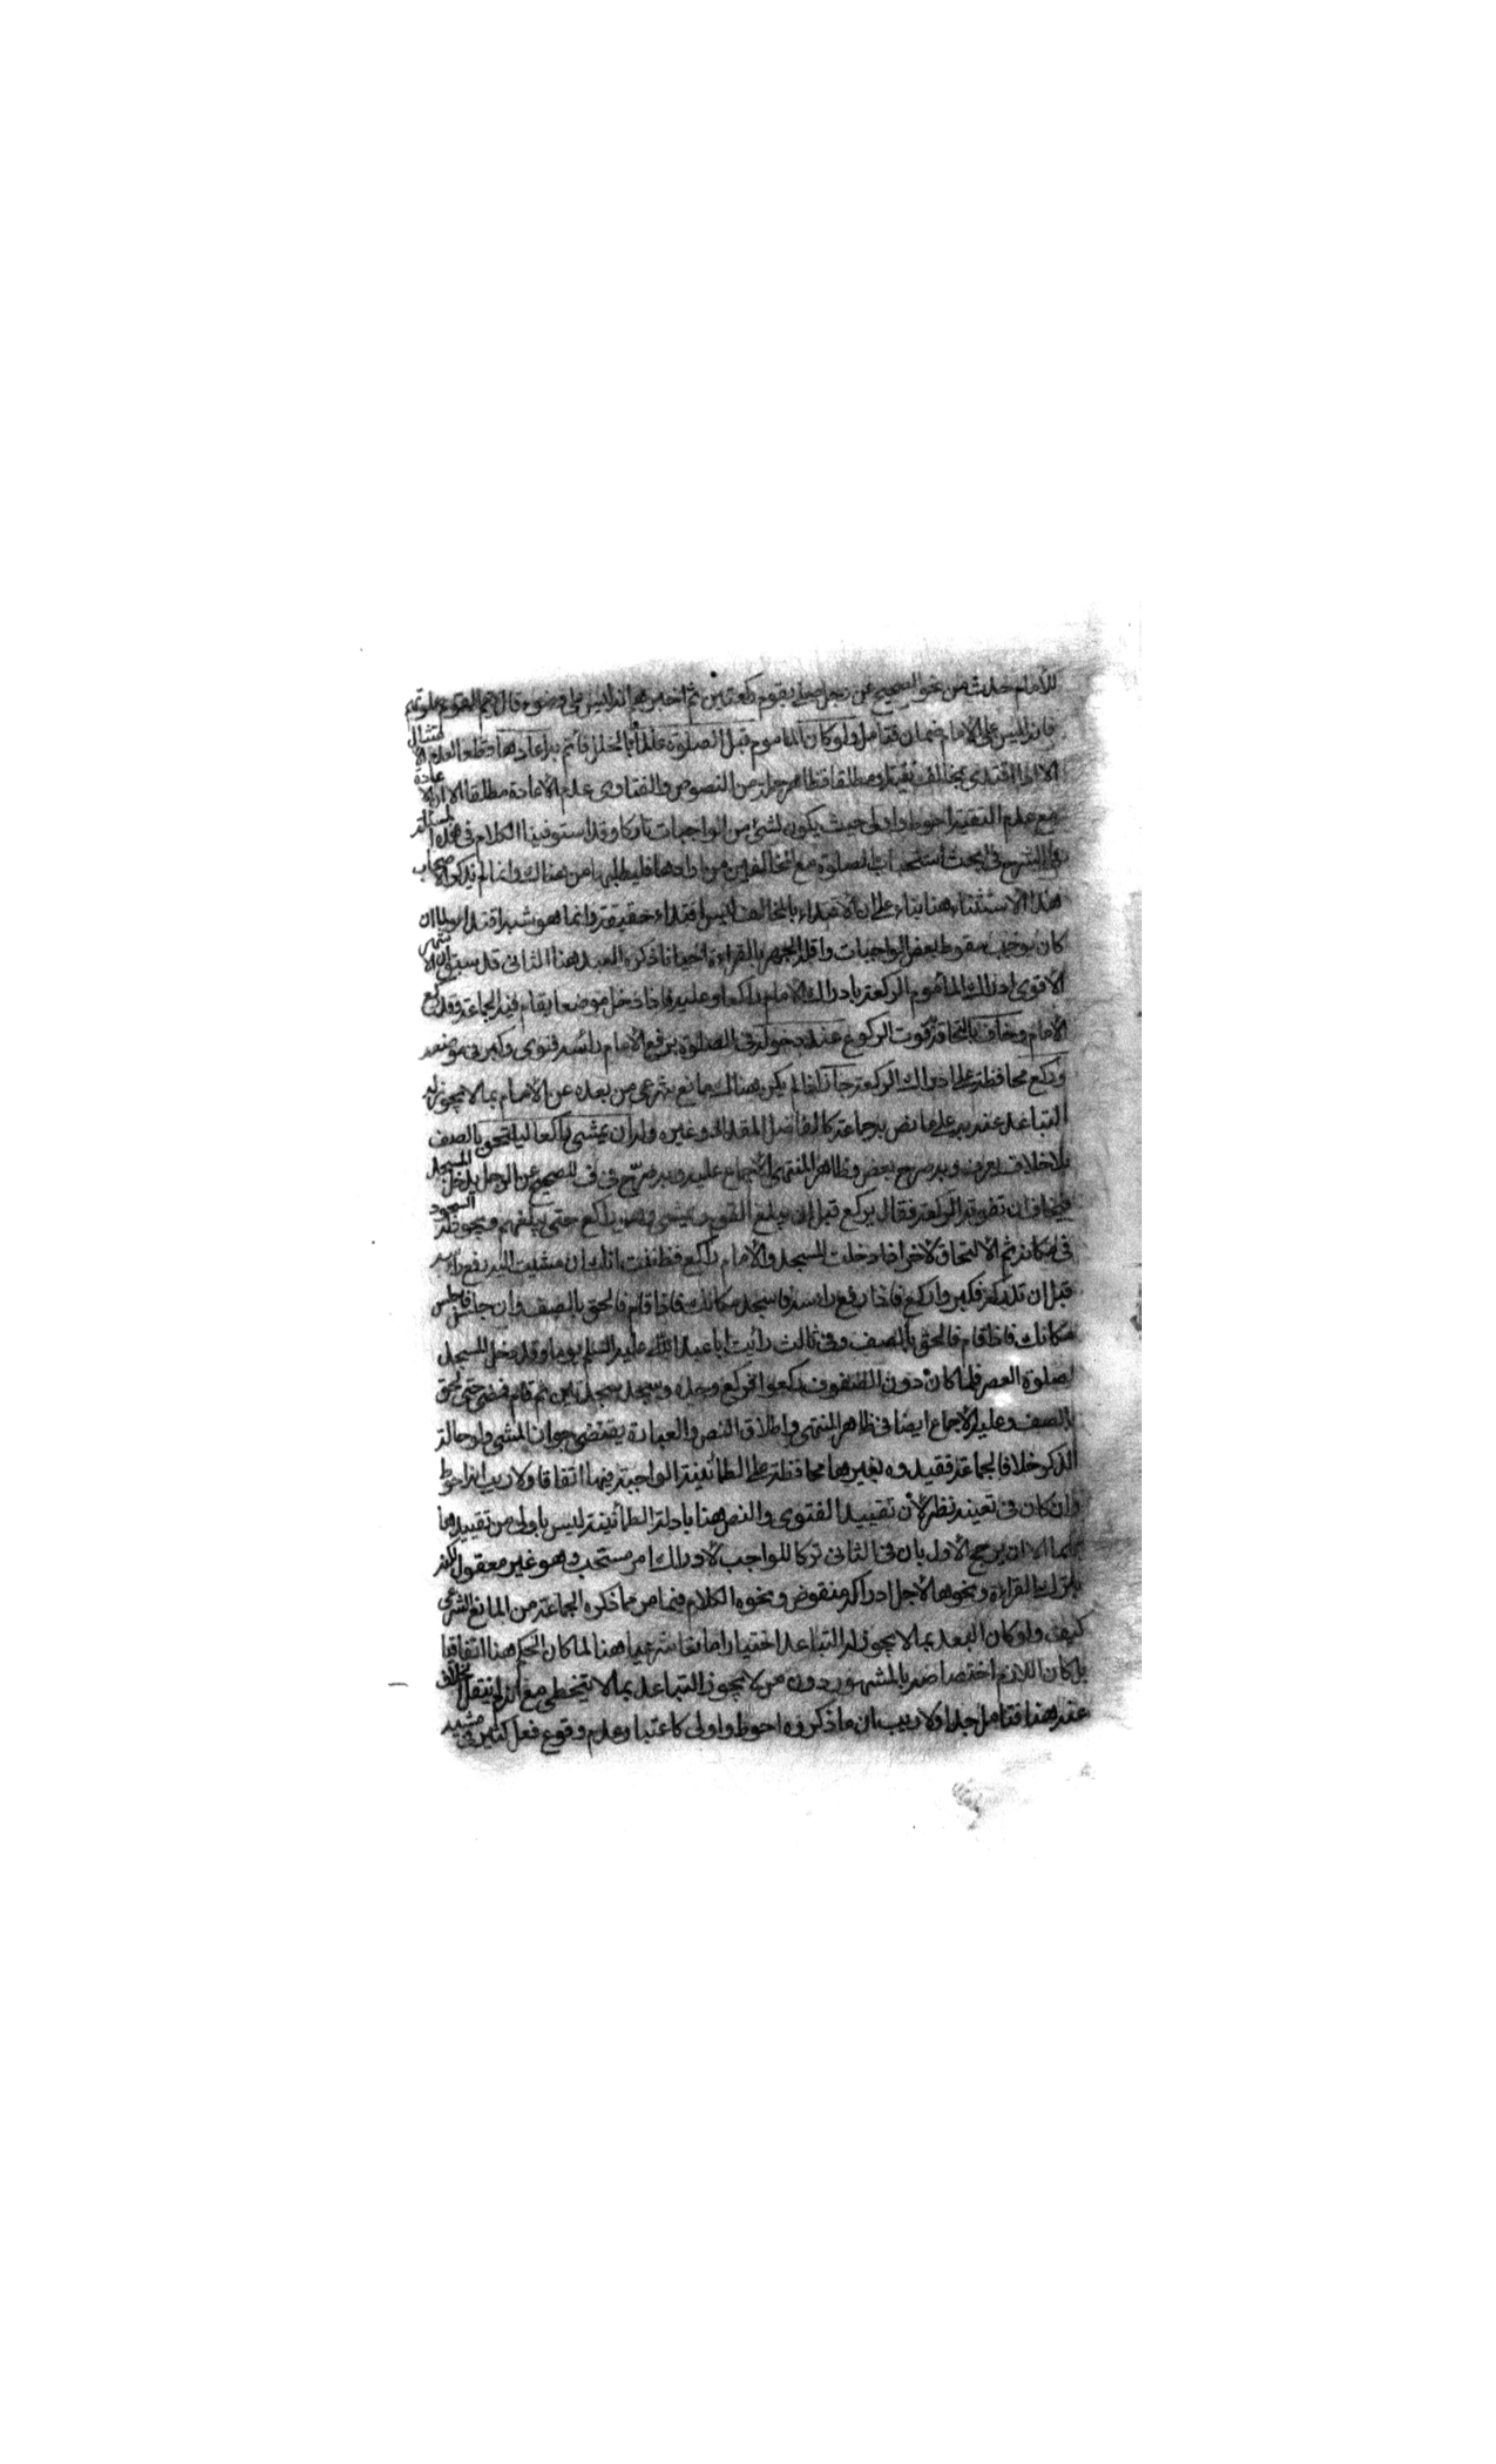 للأمام حدث من نحو الصحيح عن رجل صلى بقوم ركعتين ثم اخبرهم انه ليس على وضوء قال يتم القوم صلوتهم
فانه ليس على الامام ضمان فتامل ولو كان الماموم قبل الصلوة عالما بالخلل فأتم به اعادها قطعا لعدم الامتثال
الا اذا اقتدى بمخالف تقية او مطلقا فظاهر جملة من النصوص والفتاوى عدم الاعادة مطلقا الا ان الاعادة
مع عدم التقية احوط واولى حيث يكون لشئ من الواجبات تاركا وقد استوفينا الكلام في هذه المسئلة
في الشرح في بحث استحباب الصلوة مع المخالفين من ارادها فليطلبها من هناك وانما لم يذكر الاصحاب
هذا الاستثناء هنا بناء على ان الاقتداء بالمخالف ليس اقتداء حقيقة وانما هو شبه اقتداء وان
كان يوجب سقوط بعض الواجبات واقله الجهر بالقراءة احيانا فذكره العبد هنا الثاني قد سبق ان الاشهر
الأقوى ادراك المأموم الركعة بادراك الامام راكعا وعليه فاذا دخل موضعا يقام فيه الجماعة وقد ركع
الأمام وخاف بالتحاقه فوت الركوع عند دخوله في الصلوة برفع الأمام رأسه فنوى وكبر في موضعه
وركع محافظة على ادراك الركعة جاز اذا لم يكن هناك مانع شرعى من بعده عن الامام بما لا يجوز له
التباعد عنه به على ما نص به جماعة كالفاضل المقداد وغيره وله ان يمشي راكعا ليلتحق بالصف
بلا خلاف يعرف وبه صرح بعض وظاهر المنتهى الأجماع عليه وبه صرح في ف للصحيح عن الرجل يدخل المسجد
فيخاف ان تفوته الركعة فقال يركع قبل ان يبلغ القوم ويمشي وهو راكع حتى يبلغهم ويجوز له السجود
في مكانه ثم الالتحاق لاخر اذا دخلت المسجد والأمام راكع فظننت انك ان مشيت اليه رفع رأسه
قبل ان تدركه فكبر واركع فاذا رفع رأسه فاسجد مكانك فاذا قام فالحق بالصف وان جلس فاجلس
مكانك فاذا قام فالحق بالصف وفي ثالث رأيت ابا عبد الله عليه السلم يوما وقد دخل المسجد
لصلوة العصر فلما كان دون الصفوف ركعوا فركع وحده وسجد سجدتين ثم قام فمضى حتى لحق
بالصف وعليه الاجماع ايضا في ظاهر المنتهى واطلاق النص والعبارة يقتضي جواز المشي ولو حالة
الذكر خلافا لجماعة فقيدوه بغيرها محافظة على الطمأنينة الواجبة فيها اتفاقا ولا ريب انه احوط
وان كان في تعينه نظر لأن تقييد الفتوى والنص هنا بادلة الطمأنينة ليس باولى من تقييدها
بهما الا ان يرجح الأول بان في الثاني تركا للواجب لادراك امر مستحب وهو غير معقول لكنه
بترك القراءة ونحوها لأجل ادراكه منقوض ونحوه الكلام فيما مر مما ذكره الجماعة من المانع الشرعى
كيف ولو كان البعد بما لا يجوز له التباعد اختيارا مانعا شرعيا هنا لما كان الحكم هنا اتفاقيا
بل كان اللازم اختصاصه بالمشهور دون من لا يجوز التباعد بما لا يتخطى مع انه لم ينقل الخلاف
عنه هنا فتامل جدا ولا ريب ان ما ذكروه احوط واولى كاعتبار عدم وقوع فعل كثير في مشيه